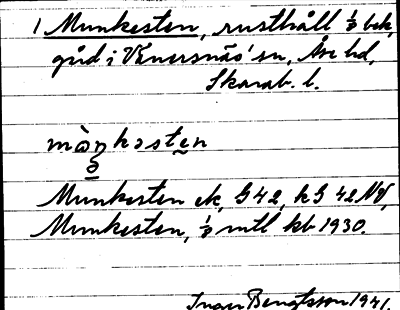 1 Munkesten, rusthåll ½ bek,
gård i Venersnäs' sn, Åse hd,
Skarab. l.
mòŋkəstẹn
Munkesten ek, G 42, kG 42 NV,
Munkesten, ½ mtl kb 1930.
Ivar Bengtsson 1941.